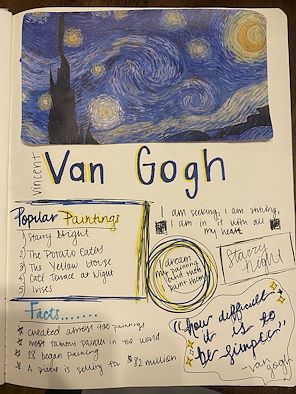 Vincent
Van Gogh
Popular Paintings
1) Starry Night
2) The Potato Eaters
3) The Yellow House
4) Café Terrace at Night
5) Irises
I am seeking, I am striving,
I am in it with all
my heart
I dream
my painting
I and then
paint them
Starry
Night
Facts.......
created almost 900 paintings
most famous painter in the world
28 began painting
A piece is selling for $82 million
"how difficult
it is to
be simple"
-van gogh